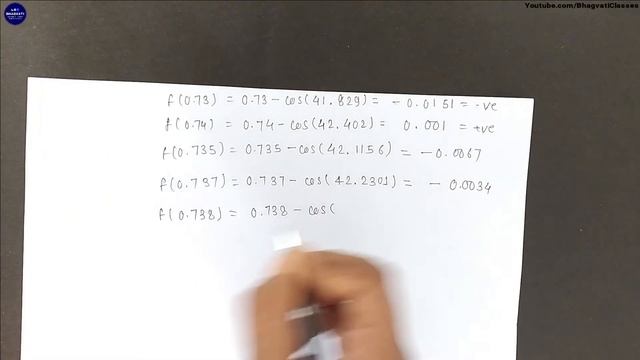 Youtube.com/BhagvatiClasses
BHAGVATI
f(0.73) = 0.73 - cos(41.829) = - 0.0151 = -ve
f(0.74) = 0.74 - cos(42.402) = 0.001 = +ve
f(0.735) = 0.735 - cos(42.1156) = - 0.0067
f(0.737) = 0.737 - cos(42.2301) = - 0.0034
f(0.738) = 0.738 - cos(